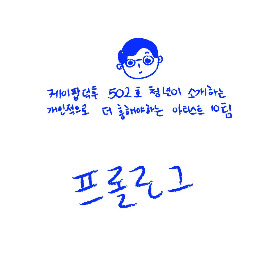 케이팝덕후 502호 형년이 소개하는
개인적으로 더 흥해야하는 아티스트 10팀
프롤로그